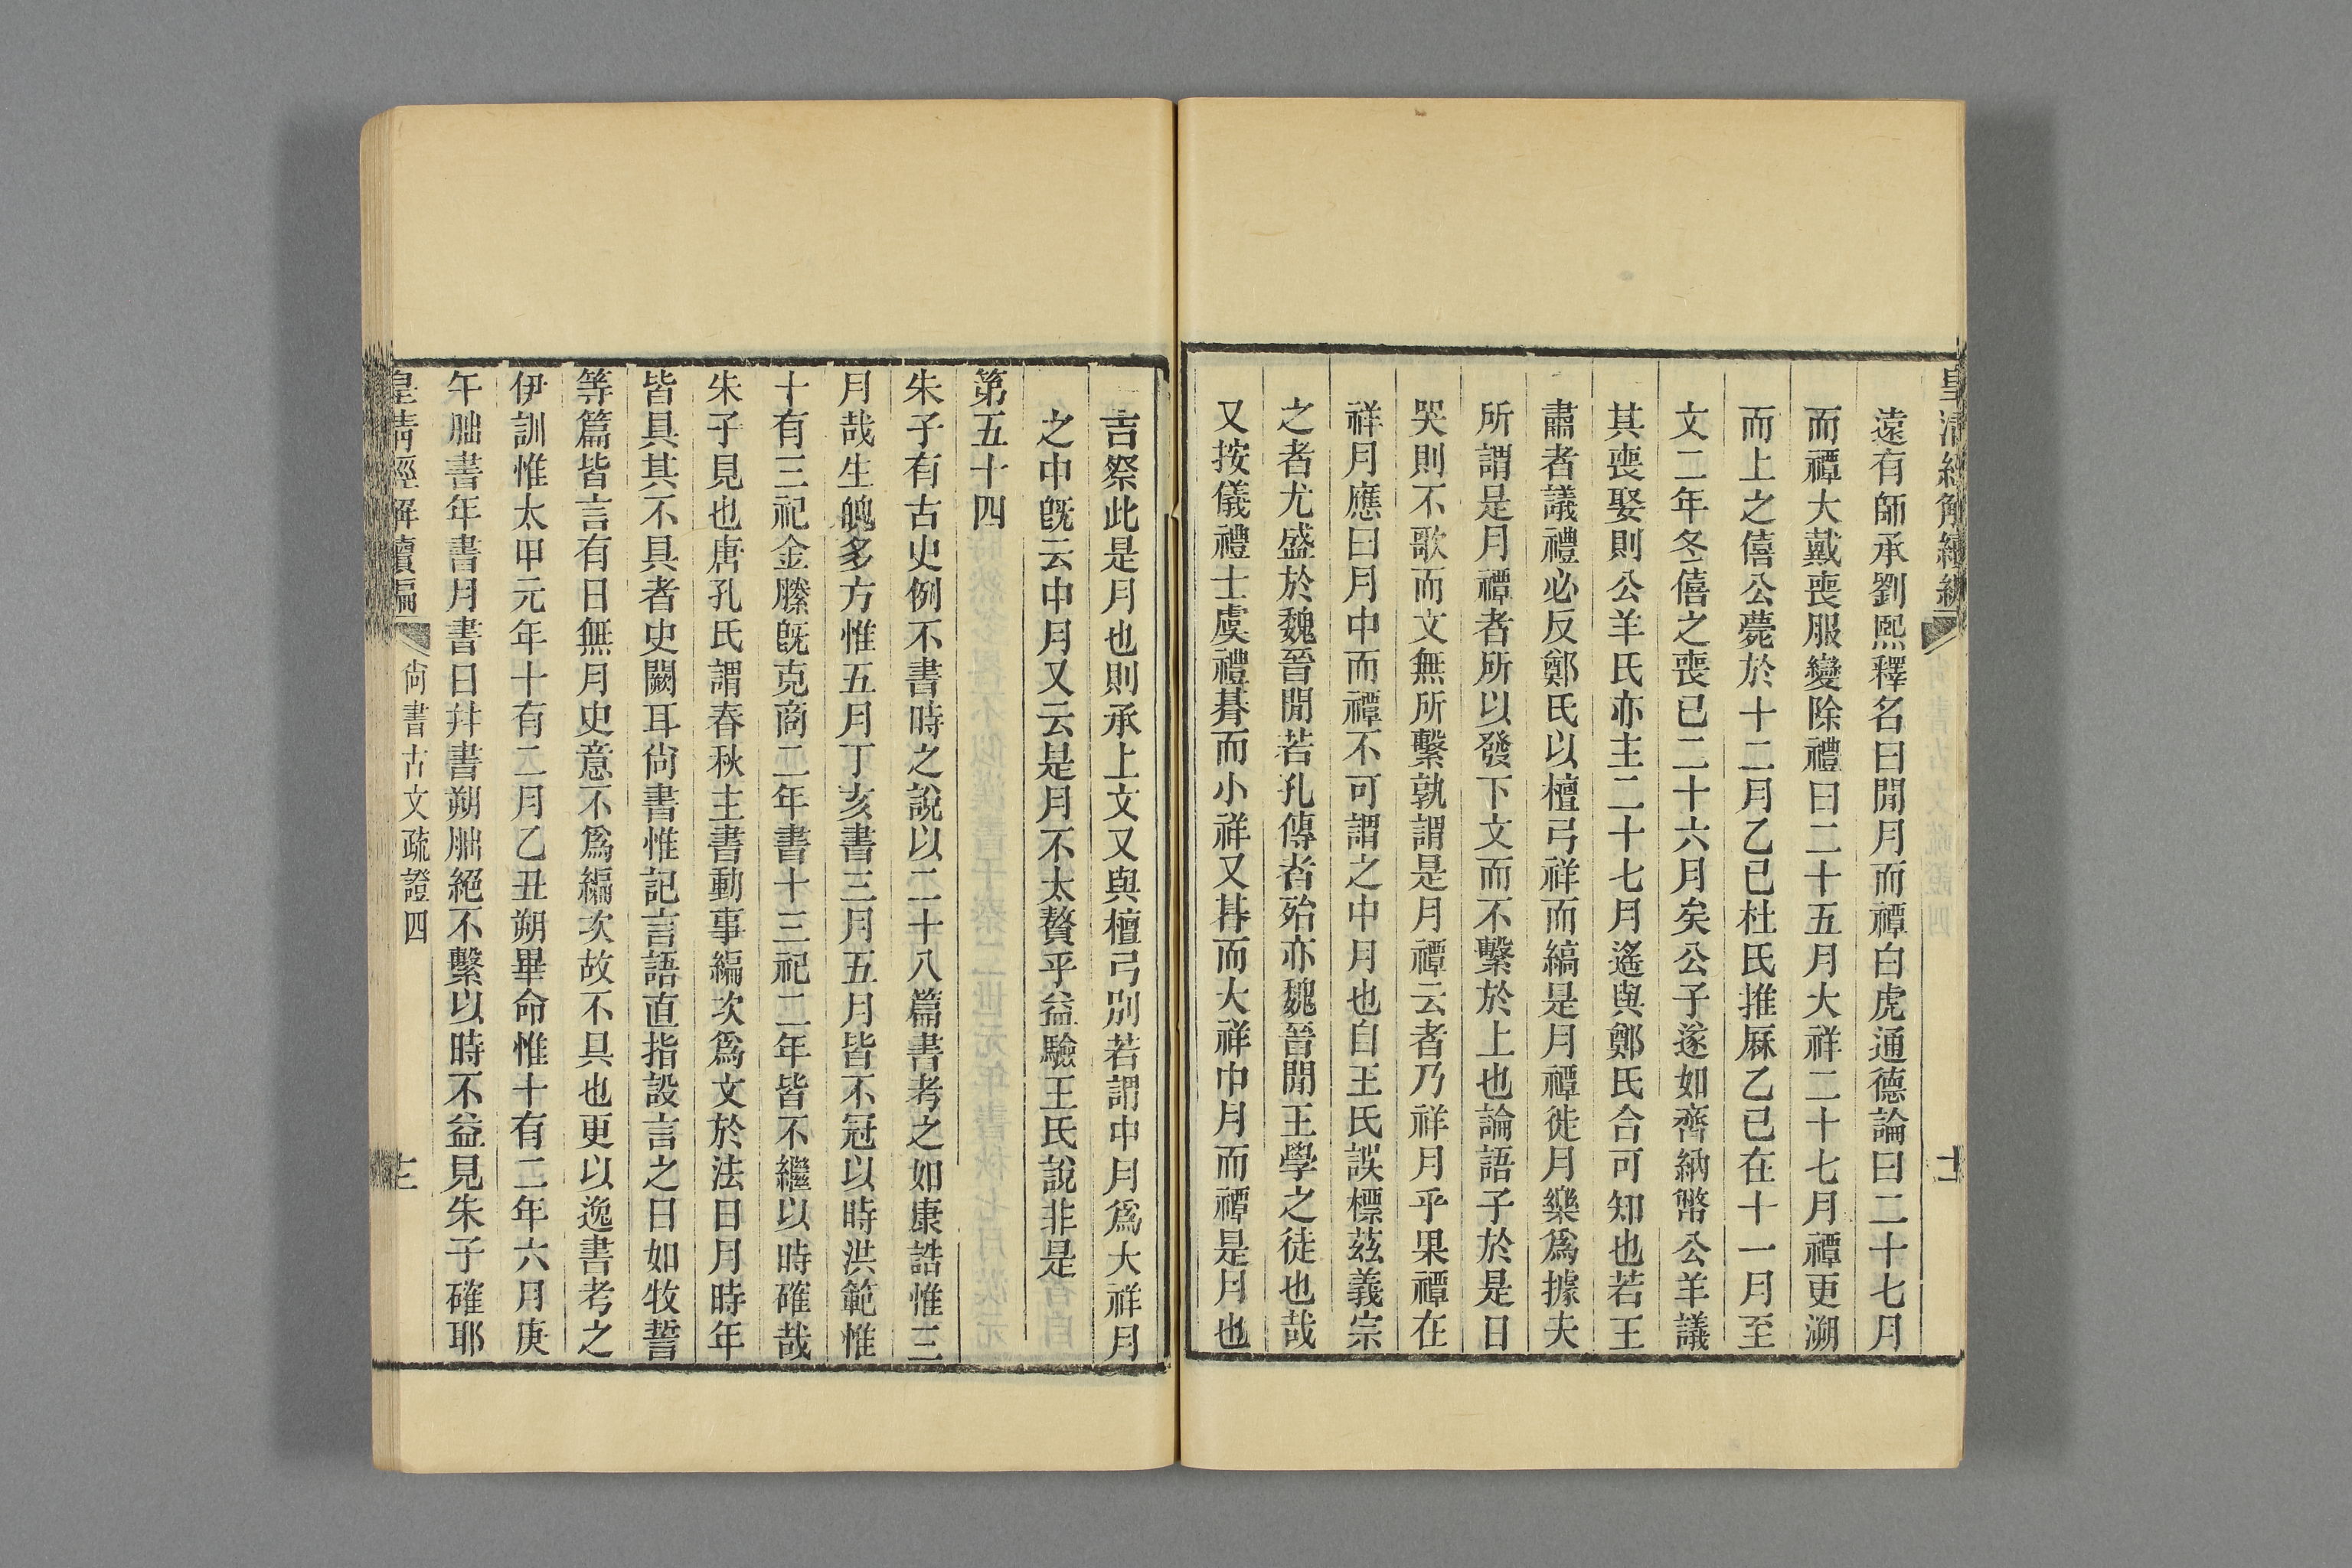 皇清經解續編
遠有師承劉熙釋名曰閒月而禫白虎通德論曰二十七月
而禫大戴喪服變除禮曰二十五月大祥二十七月禫更溯
而上之僖公薨於十二月乙巳杜氏推厤乙巳在十一月至
文二年冬僖之喪已二十六月矣公子遂如齊納幣公羊議
其喪娶則公羊氏亦主二十七月遙與鄭氏合可知也若王
肅者議禮必反鄭氏以檀弓祥而縞是月禫徙月樂爲據夫
所謂是月禫者所以發下文而不繫於上也論語子於是日
哭則不歌而文無所繫孰謂是月禫云者乃祥月乎果禫在
祥月應曰月中而禫不可謂之中月也自王氏誤標茲義宗
之者尤盛於魏晉閒若孔傳者殆亦魏晉閒王學之徒也哉
又按儀禮士虞禮朞而小祥又朞而大祥中月而禫是月也
吉祭此是月也則承上文又與檀弓別若謂中月爲大祥月
之中旣云中月又云是月不太贅乎益驗王氏說非是
第五十四
朱子有古史例不書時之說以二十八篇書考之如康誥惟三
月哉生魄多方惟五月丁亥書三月五月皆不冠以時洪範惟
十有三祀金縢旣克商二年書十三祀二年皆不繼以時確哉
朱子見也唐孔氏謂春秋主書動事編次爲文於法日月時年
皆具其不具者史闕耳尙書惟記言語直指設言之日如牧誓
等篇皆言有日無月史意不爲編次故不具也更以逸書考之
伊訓惟太甲元年十有二月乙丑朔畢命惟十有二年六月庚
午朏書年書月書日幷書朔朏絕不繫以時不益見朱子確耶
皇清經解續編
尙書古文疏證四